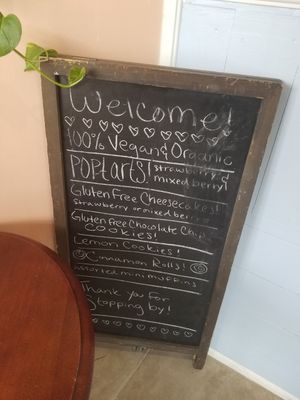 Welcome!
100% Vegan & Organic
POPtarts! strawberry &
mixed berry!
Gluten Free Cheesecakes!
strawberry or mixed berry
Gluten free Chocolate Chip
COOKIES!
Lemon Cookies!
Cinnamon Rolls!
assorted mini muffins
Thank you for
stopping by!